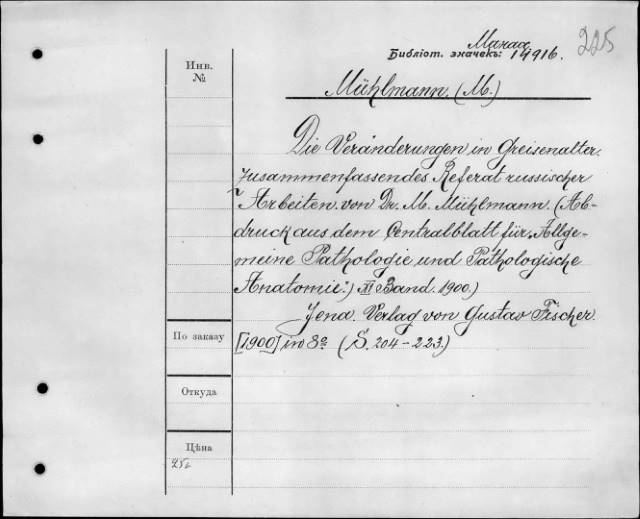 225
Библіот. значекъ: 14916.
Инв.
№
Mühlmann. (M.)
Die Veränderungen in Greisenalter.
Zusammenfassendes Referat russischer
Arbeiten. von Dr. M. Mühlmann. (Ab-
druck aus dem Centralblatt für Allge-
meine Pathologie und Pathologische
Anatomie.) XI Band. 1900.)
Jena. Verlag von Gustav Fischer.
По заказу
[1900] in 8º (S. 204-223.)
Откуда
Цѣна